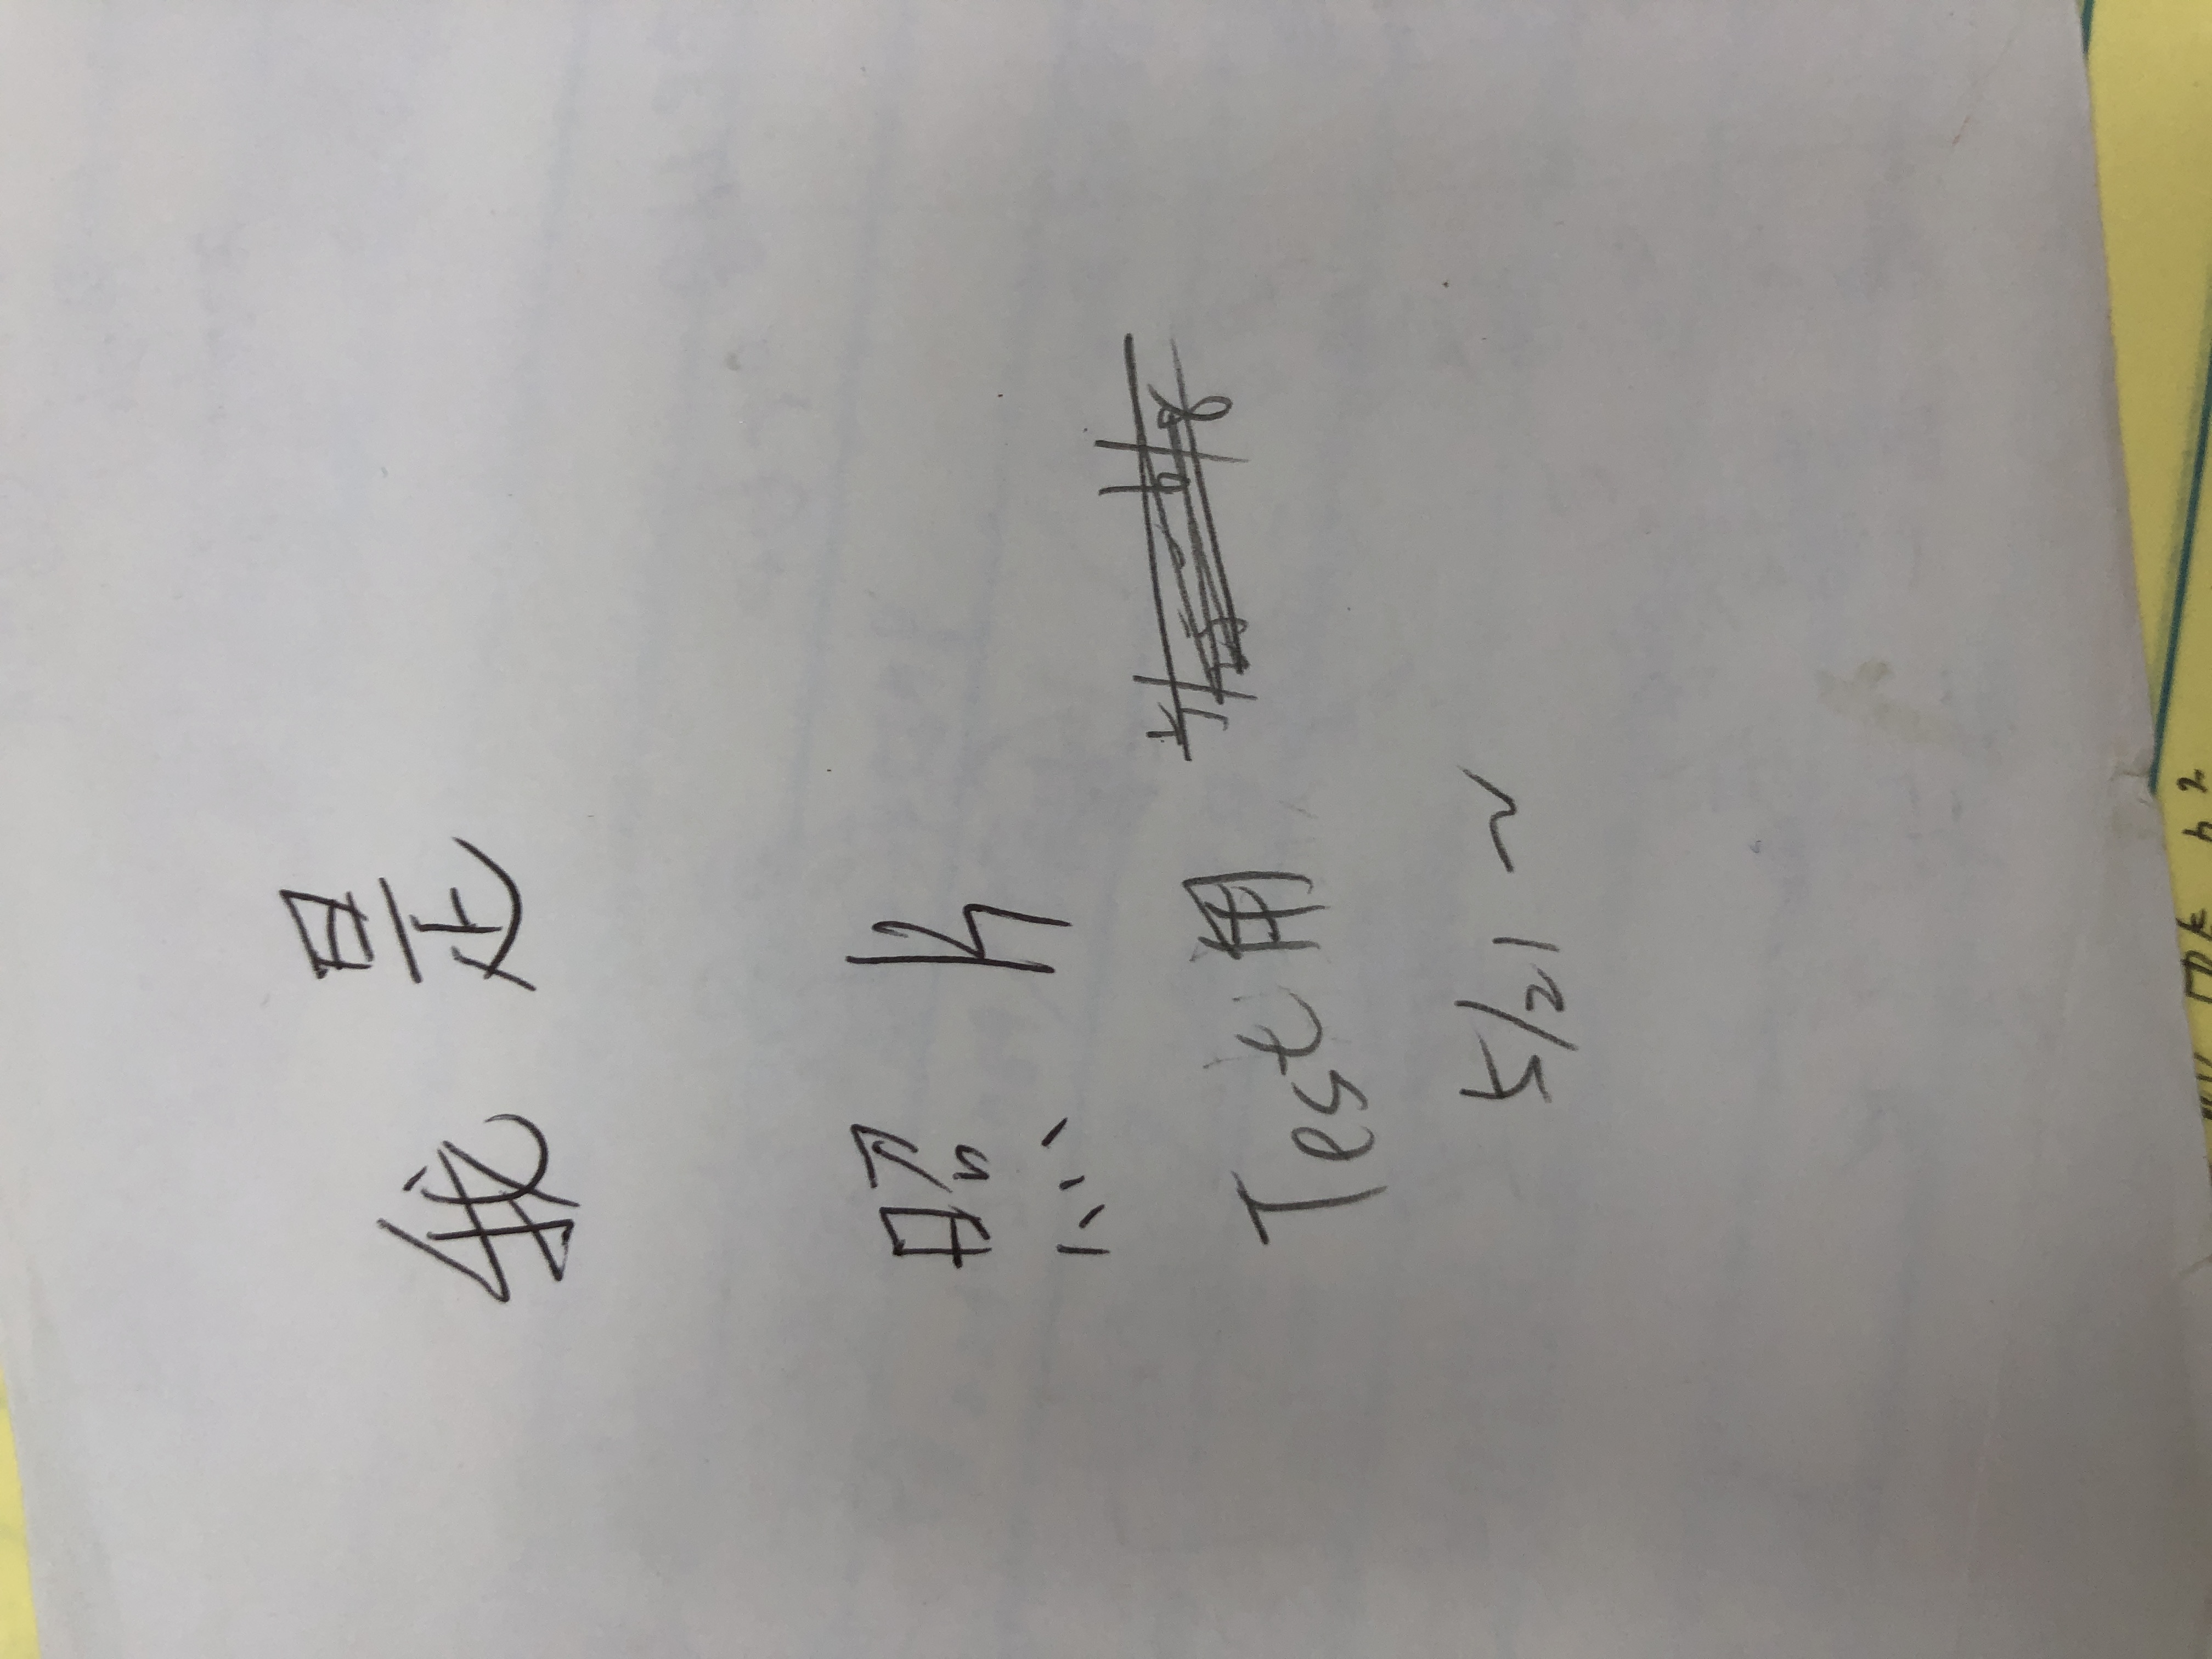 我是
照片
Test用
5/21~